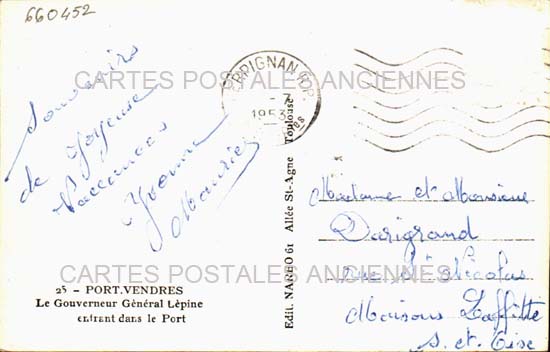 660452
CARTES POSTALES ANCIENNES
PERPIGNAN R.P.
-7
1953
Souvenirs
de Joyeuse
Vaccances
Yvonne
Maurice
Madame et Monsieur
Darigrand
rue St Nicolas
Maisons Laffitte
S. et Oise
CARTES POSTALES ANCIENNES
25 - PORT-VENDRES
Le Gouverneur Général Lépine
entrant dans le Port
Edit. NARBO 61 Allée St-Agne Toulouse